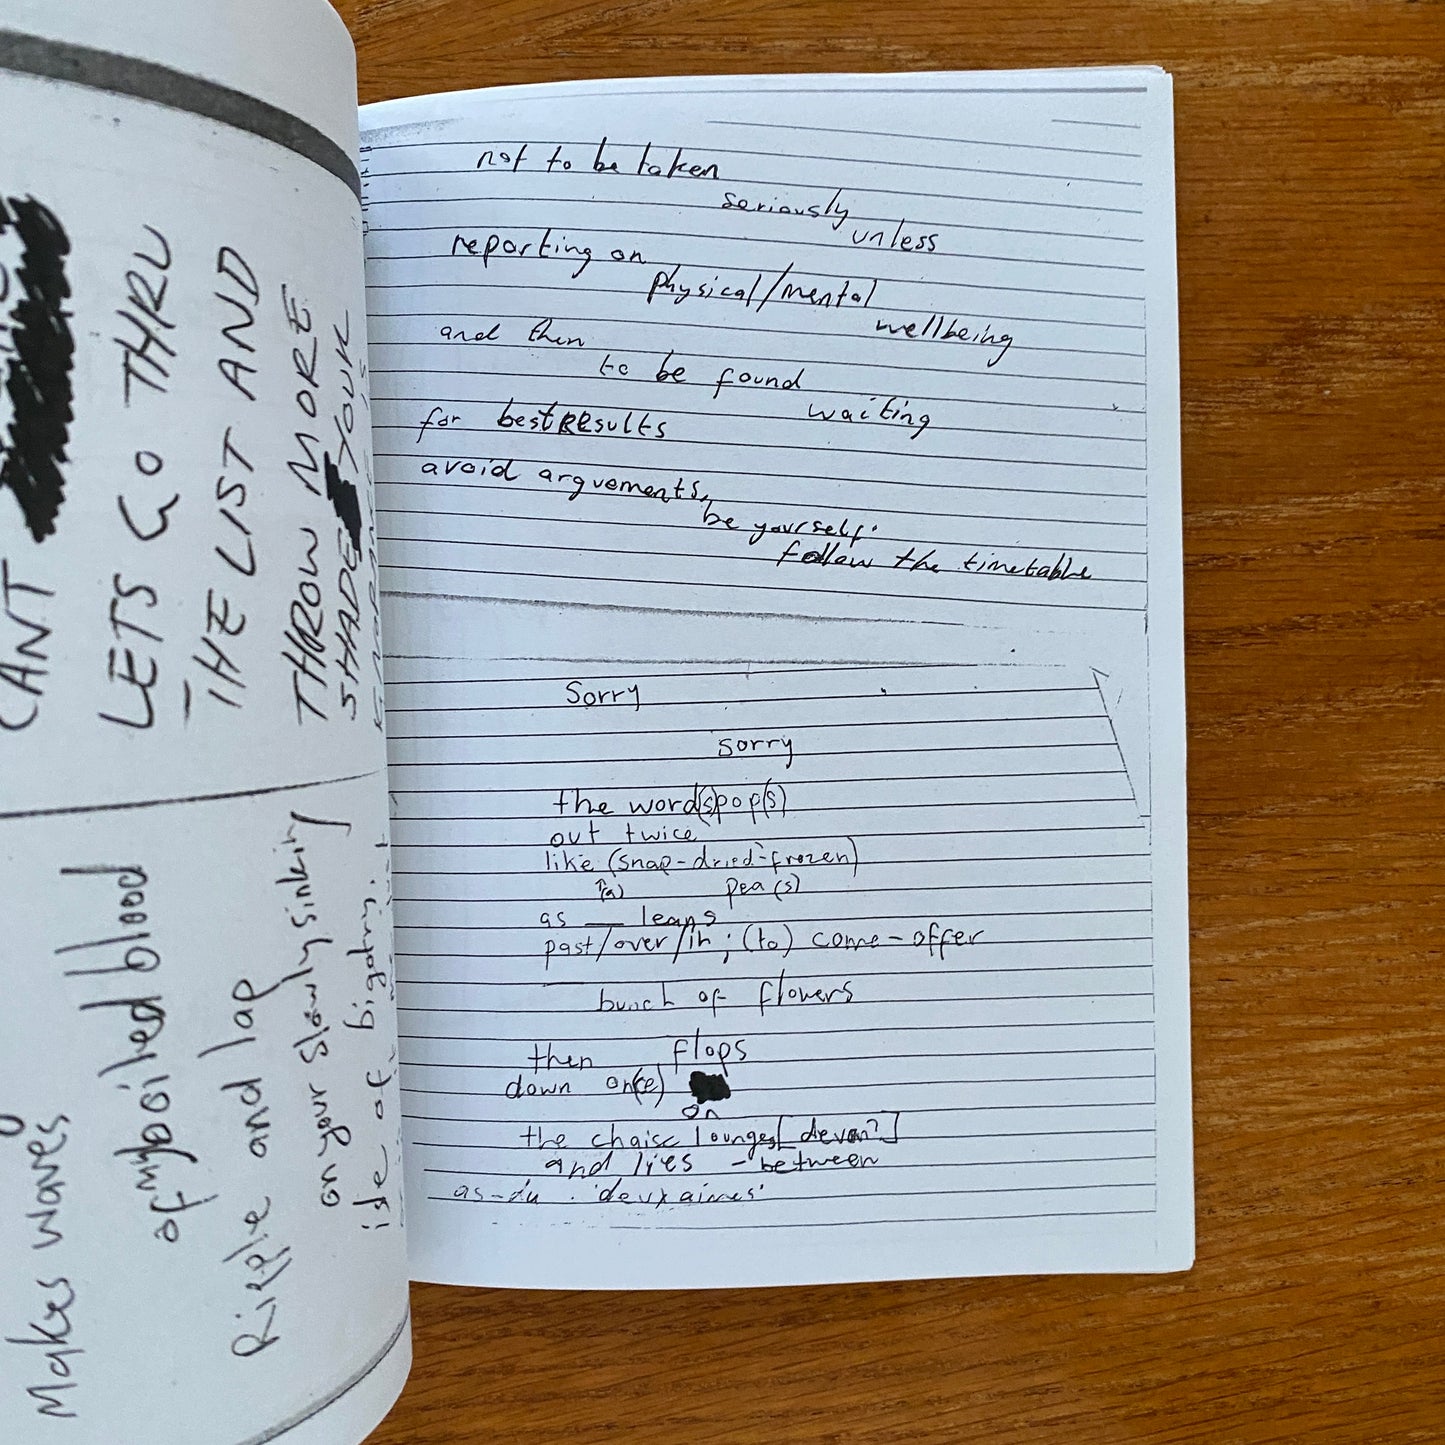 CANT
LETS GO THRU
THE LIST AND
THROW MORE
SHADE YOUR
Makes waves
of boiled blood
Ripple and lap
on your slowly sinking
isle of bigotry.
not to be taken
seriously
unless
reporting on
physical/mental
wellbeing
and then
to be found
waiting
for best REsults
avoid arguements,
be yourself.
follow the timetable
Sorry
sorry
the word(s) pop(s)
out twice
like (snap-dried-frozen)
(a) pea(s)
as __ leans
past/over/in; (to) come-offer
bunch of flowers
then flops
down on(ce)
on
the chaise lounges [devan?]
and lies - between
as-du 'deux aimes'